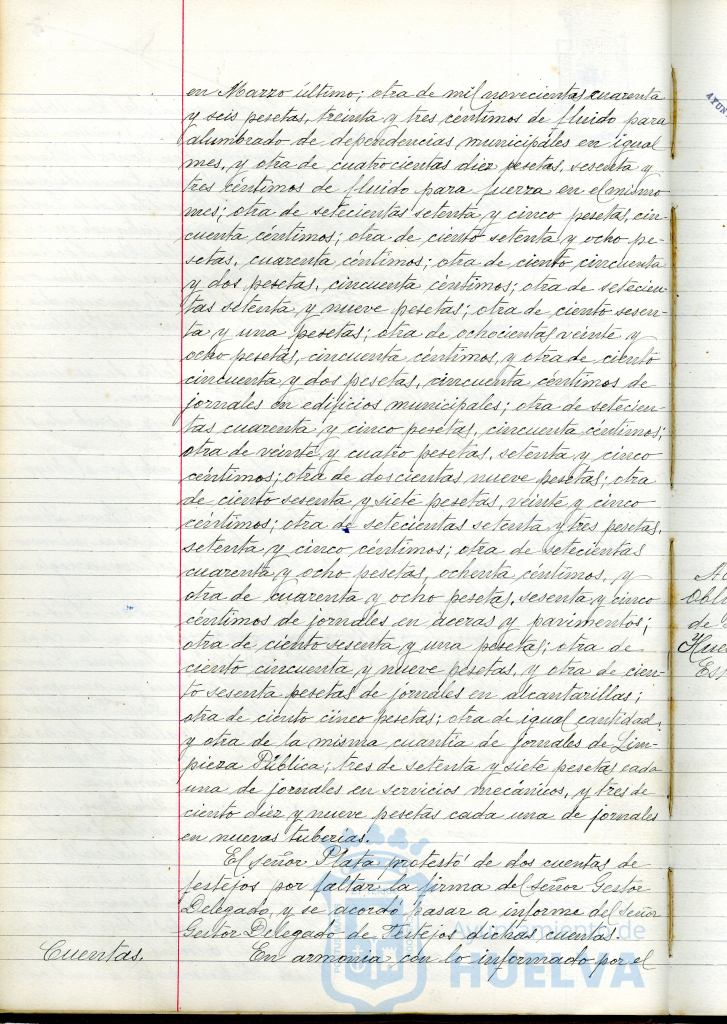 en Marzo último; otra de mil novecientas cuarenta
y seis pesetas, treinta y tres céntimos de fluido para
alumbrado de dependencias municipales en igual
mes, y otra de cuatrocientas diez pesetas, sesenta y
tres céntimos de fluido para fuerza en el mismo
mes; otra de setecientas setenta y cinco pesetas, cin-
cuenta céntimos; otra de ciento setenta y ocho pe-
setas, cuarenta céntimos; otra de ciento cincuenta
y dos pesetas, cincuenta céntimos; otra de setecien-
tas setenta y nueve pesetas; otra de ciento sesen-
ta y una pesetas; otra de ochocientas veinte y
ocho pesetas, cincuenta céntimos, y otra de ciento
cincuenta y dos pesetas, cincuenta céntimos de
jornales en edificios municipales; otra de setecien-
tas cuarenta y cinco pesetas, cincuenta céntimos;
otra de veinte y cuatro pesetas, setenta y cinco
céntimos; otra de doscientas nueve pesetas; otra
de ciento sesenta y siete pesetas, veinte y cinco
céntimos; otra de setecientas setenta y tres pesetas,
setenta y cinco centimos; otra de setecientas
cuarenta y ocho pesetas, ochenta céntimos, y
otra de cuarenta y ocho pesetas, sesenta y cinco
céntimos de jornales en aceras y pavimentos;
otra de ciento sesenta y una pesetas; otra de
ciento cincuenta y nueve pesetas, y otra de cien-
to sesenta pesetas de jornales en alcantarillas;
otra de ciento cinco pesetas; otra de igual cantidad;
y otra de la misma cuantía de jornales de Lim-
pieza Pública; tres de setenta y siete pesetas cada
una de jornales en servicios mecánicos, y tres de
ciento diez y nueve pesetas cada una de jornales
en nuevas tuberias.
El señor Plata protestó de dos cuentas de
festejos por faltar la firma del señor Gestor
Delegado, y se acordó pasar a informe del señor
Gestor Delegado de Festejos dichas cuentas.
Cuentas. En armonia con lo informado por el
Ayuntamiento de
HUELVA